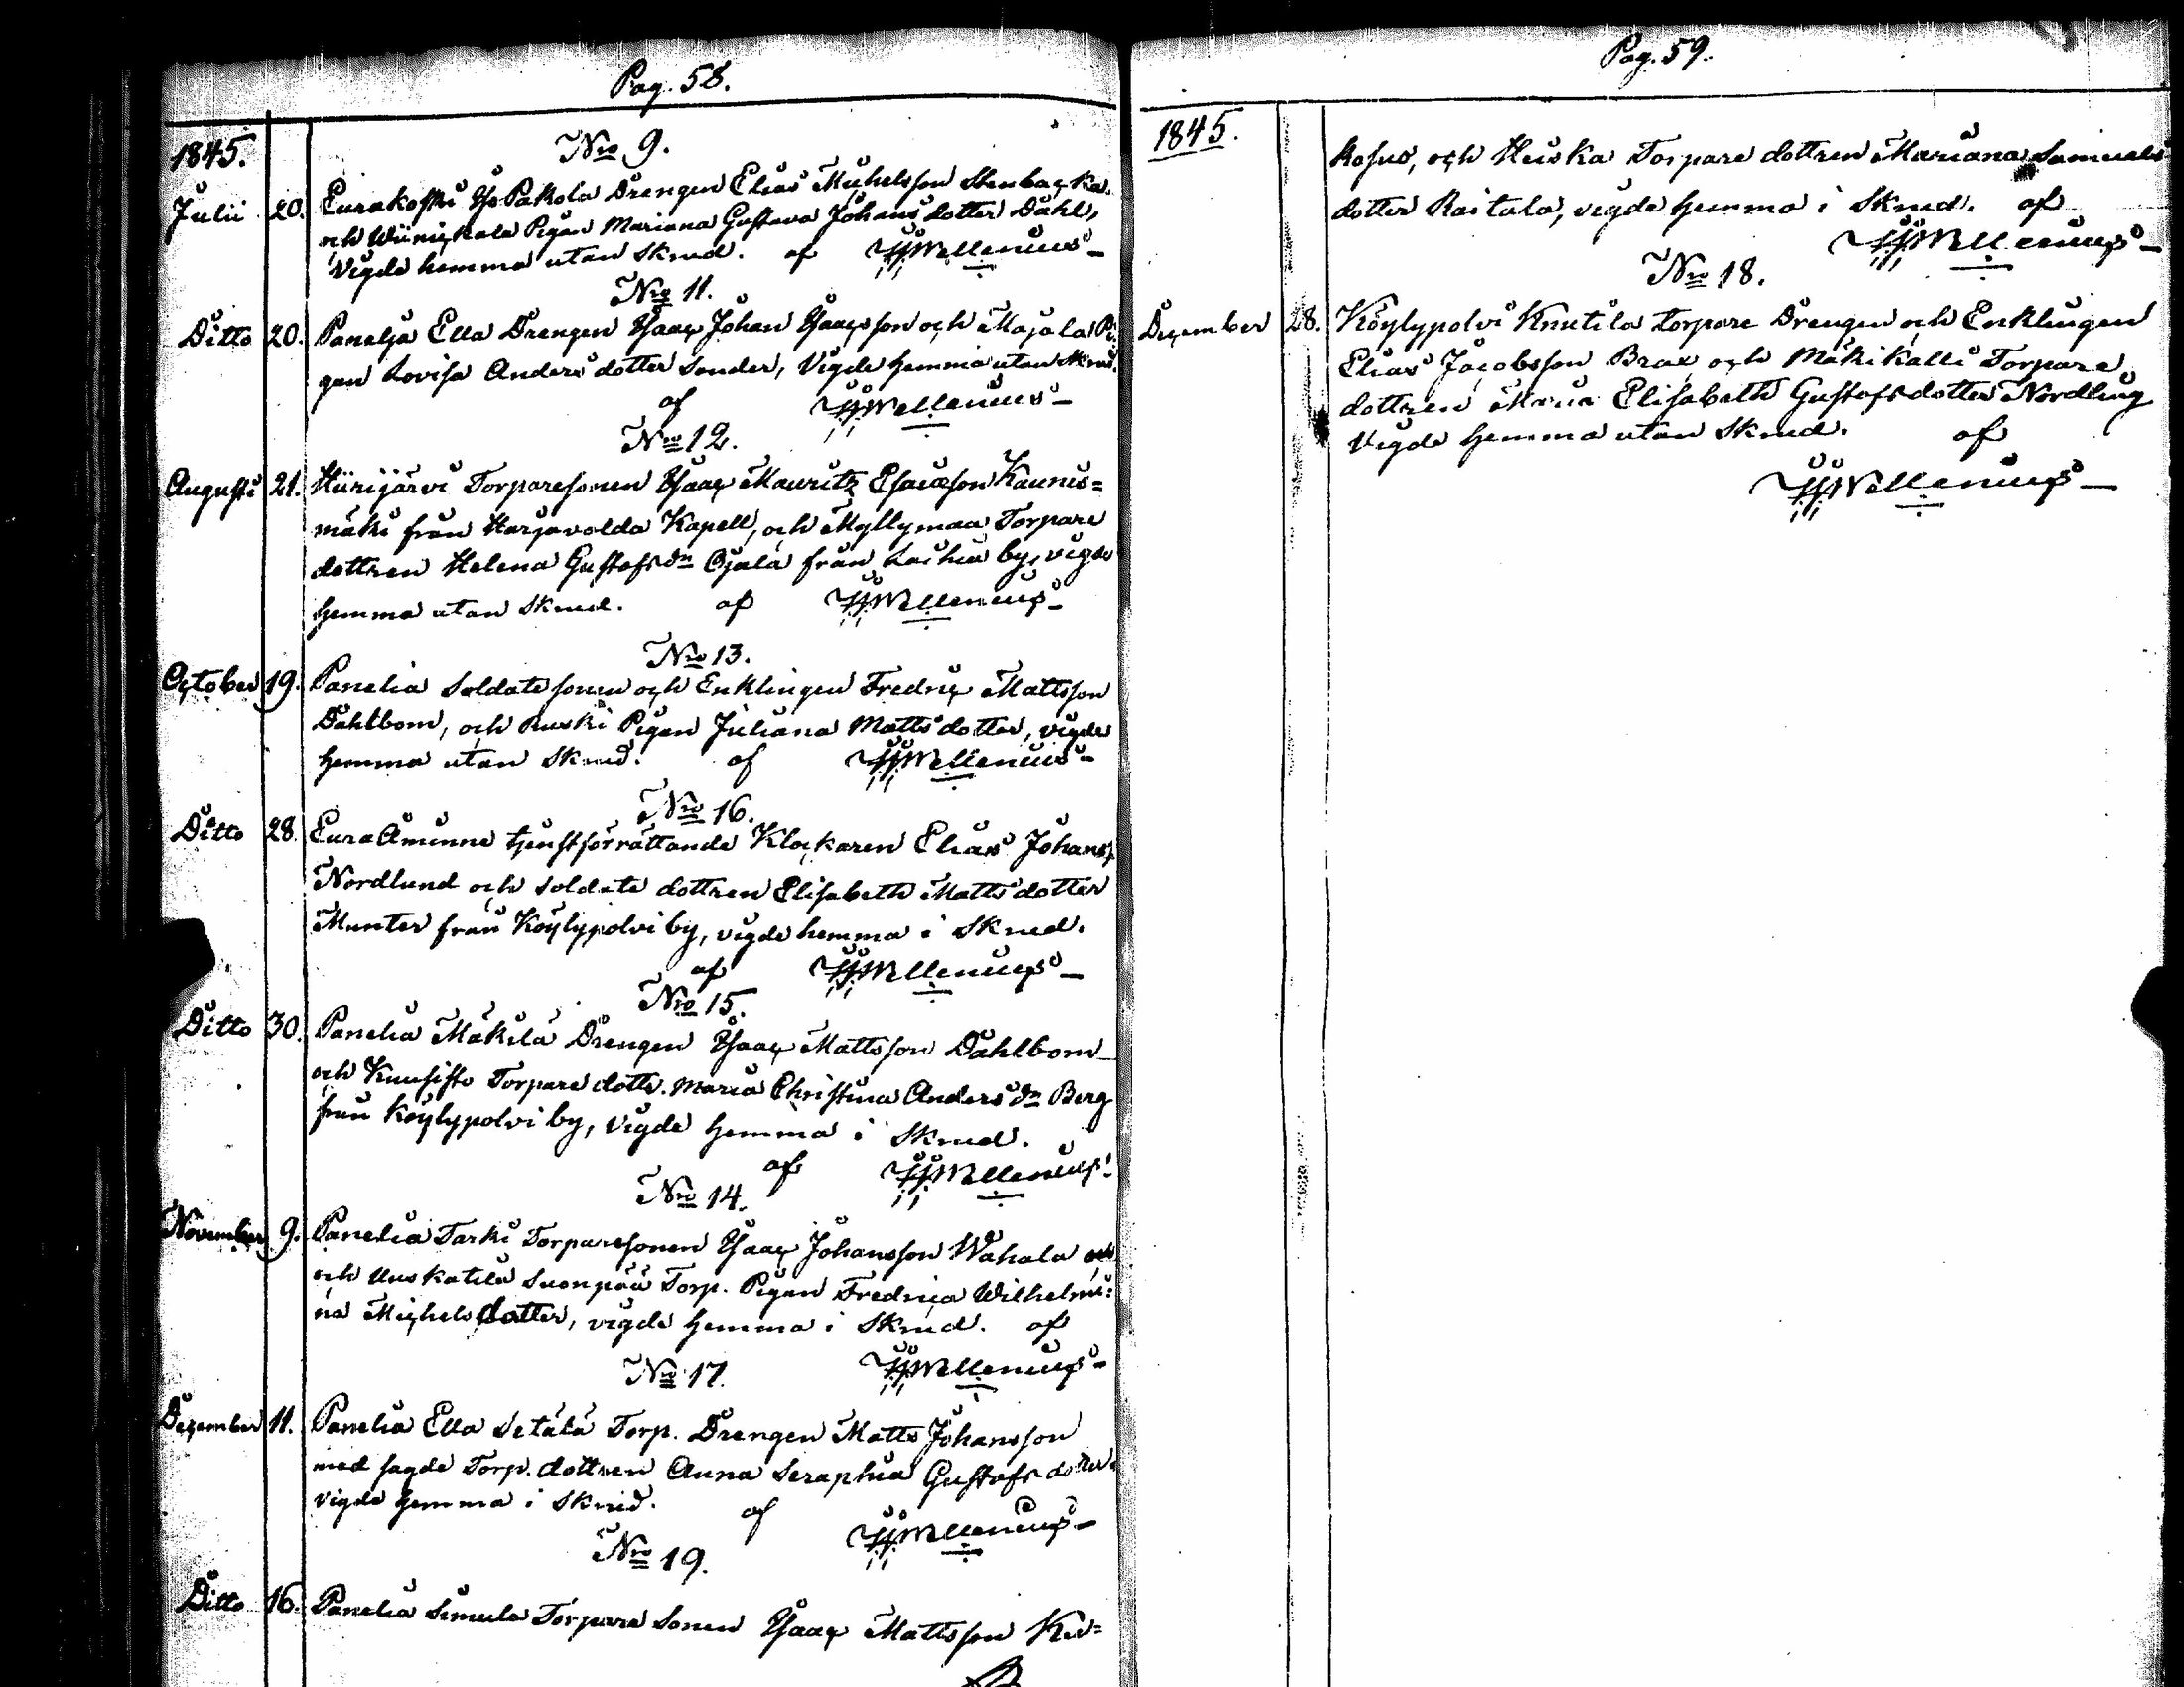 Pag. 58.
1845.
Nro 9.
Julii 20. Eurakoski Yso Pakola Drengen Elias Michelsson Stenbacka
och Wiinickala Pigan Mariana Gustava Johans dotter Dahl,
Vigde hemma utan Skrud. af Wellenius
Nro 11.
Ditto 20. Panelja Ella Drengen Isaac Johan Isaacsson och Majala Pi-
gan Lovisa Anders dotter Sonder, Vigde hemma utan Skrud.
af Wellenius
Nro 12.
Augusti 21. Hiirijärvi Torparesonen Isaac Mauritz Esaiasson Kaunis=
mäki från Harjavalda Kapell, och Myllymaa Torpare
dottren Helena Gustafs dr Ojala från Laihia by, vigde
hemma utan Skrud. af Wellenius
Nro 13.
October 19. Panelia Soldate sonen och Enklingen Fredric Mattsson
Dahlbom, och Ruski Pigan Juliana Matts dotter, vigde
hemma utan Skrud. af Wellenius
Nro 16.
Ditto 28. EuraÅminne tjenstförrättande Klockaren Elias Johans
Nordlund och Soldate dottren Elisabeth Matts dotter
Munter från Köylypolvi by, vigde hemma i Skrud.
af Wellenius
Nro 15.
Ditto 30. Panelia Mäkilä Drengen Isaac Mattsson Dahlbom
och Kuusisto Torpare dottr. Maria Christina Anders dr Berg
från Köylypolvi by, vigde hemma i Skrud.
af Wellenius
Nro 14.
November 9. Panelia Tarki Torparesonen Isaac Johansson Wähala
och Uuskatila Suonpää Torp. Pigan Fredrica Wilhelmi=
na Michels dotter, vigde hemma i Skrud. af
Nro 17. Wellenius
December 11. Panelia Ella Setälä Torp. Drengen Matts Johansson
med sagde Torp. dottren Anna Seraphia Gustafs dotter
vigde hemma i Skrud. af Wellenius
Nro 19.
Ditto 16. Panelia Simula Torpare Sonen Isaac Mattsson Ku=
Pag. 59.
1845.
kosus, och Heiska Torpare dottren Mariana Samuels
dotter Raitala, vigde hemma i Skrud. af
Wellenius
Nro 18.
December 28. Köylypolvi Knutila Torpare Drengen och Enklingen
Elias Jacobsson Brax och Mäkikalli Torpare
dottren Maria Elisabeth Gustafs dotter Nordling
Vigde hemma utan Skrud. af
Wellenius